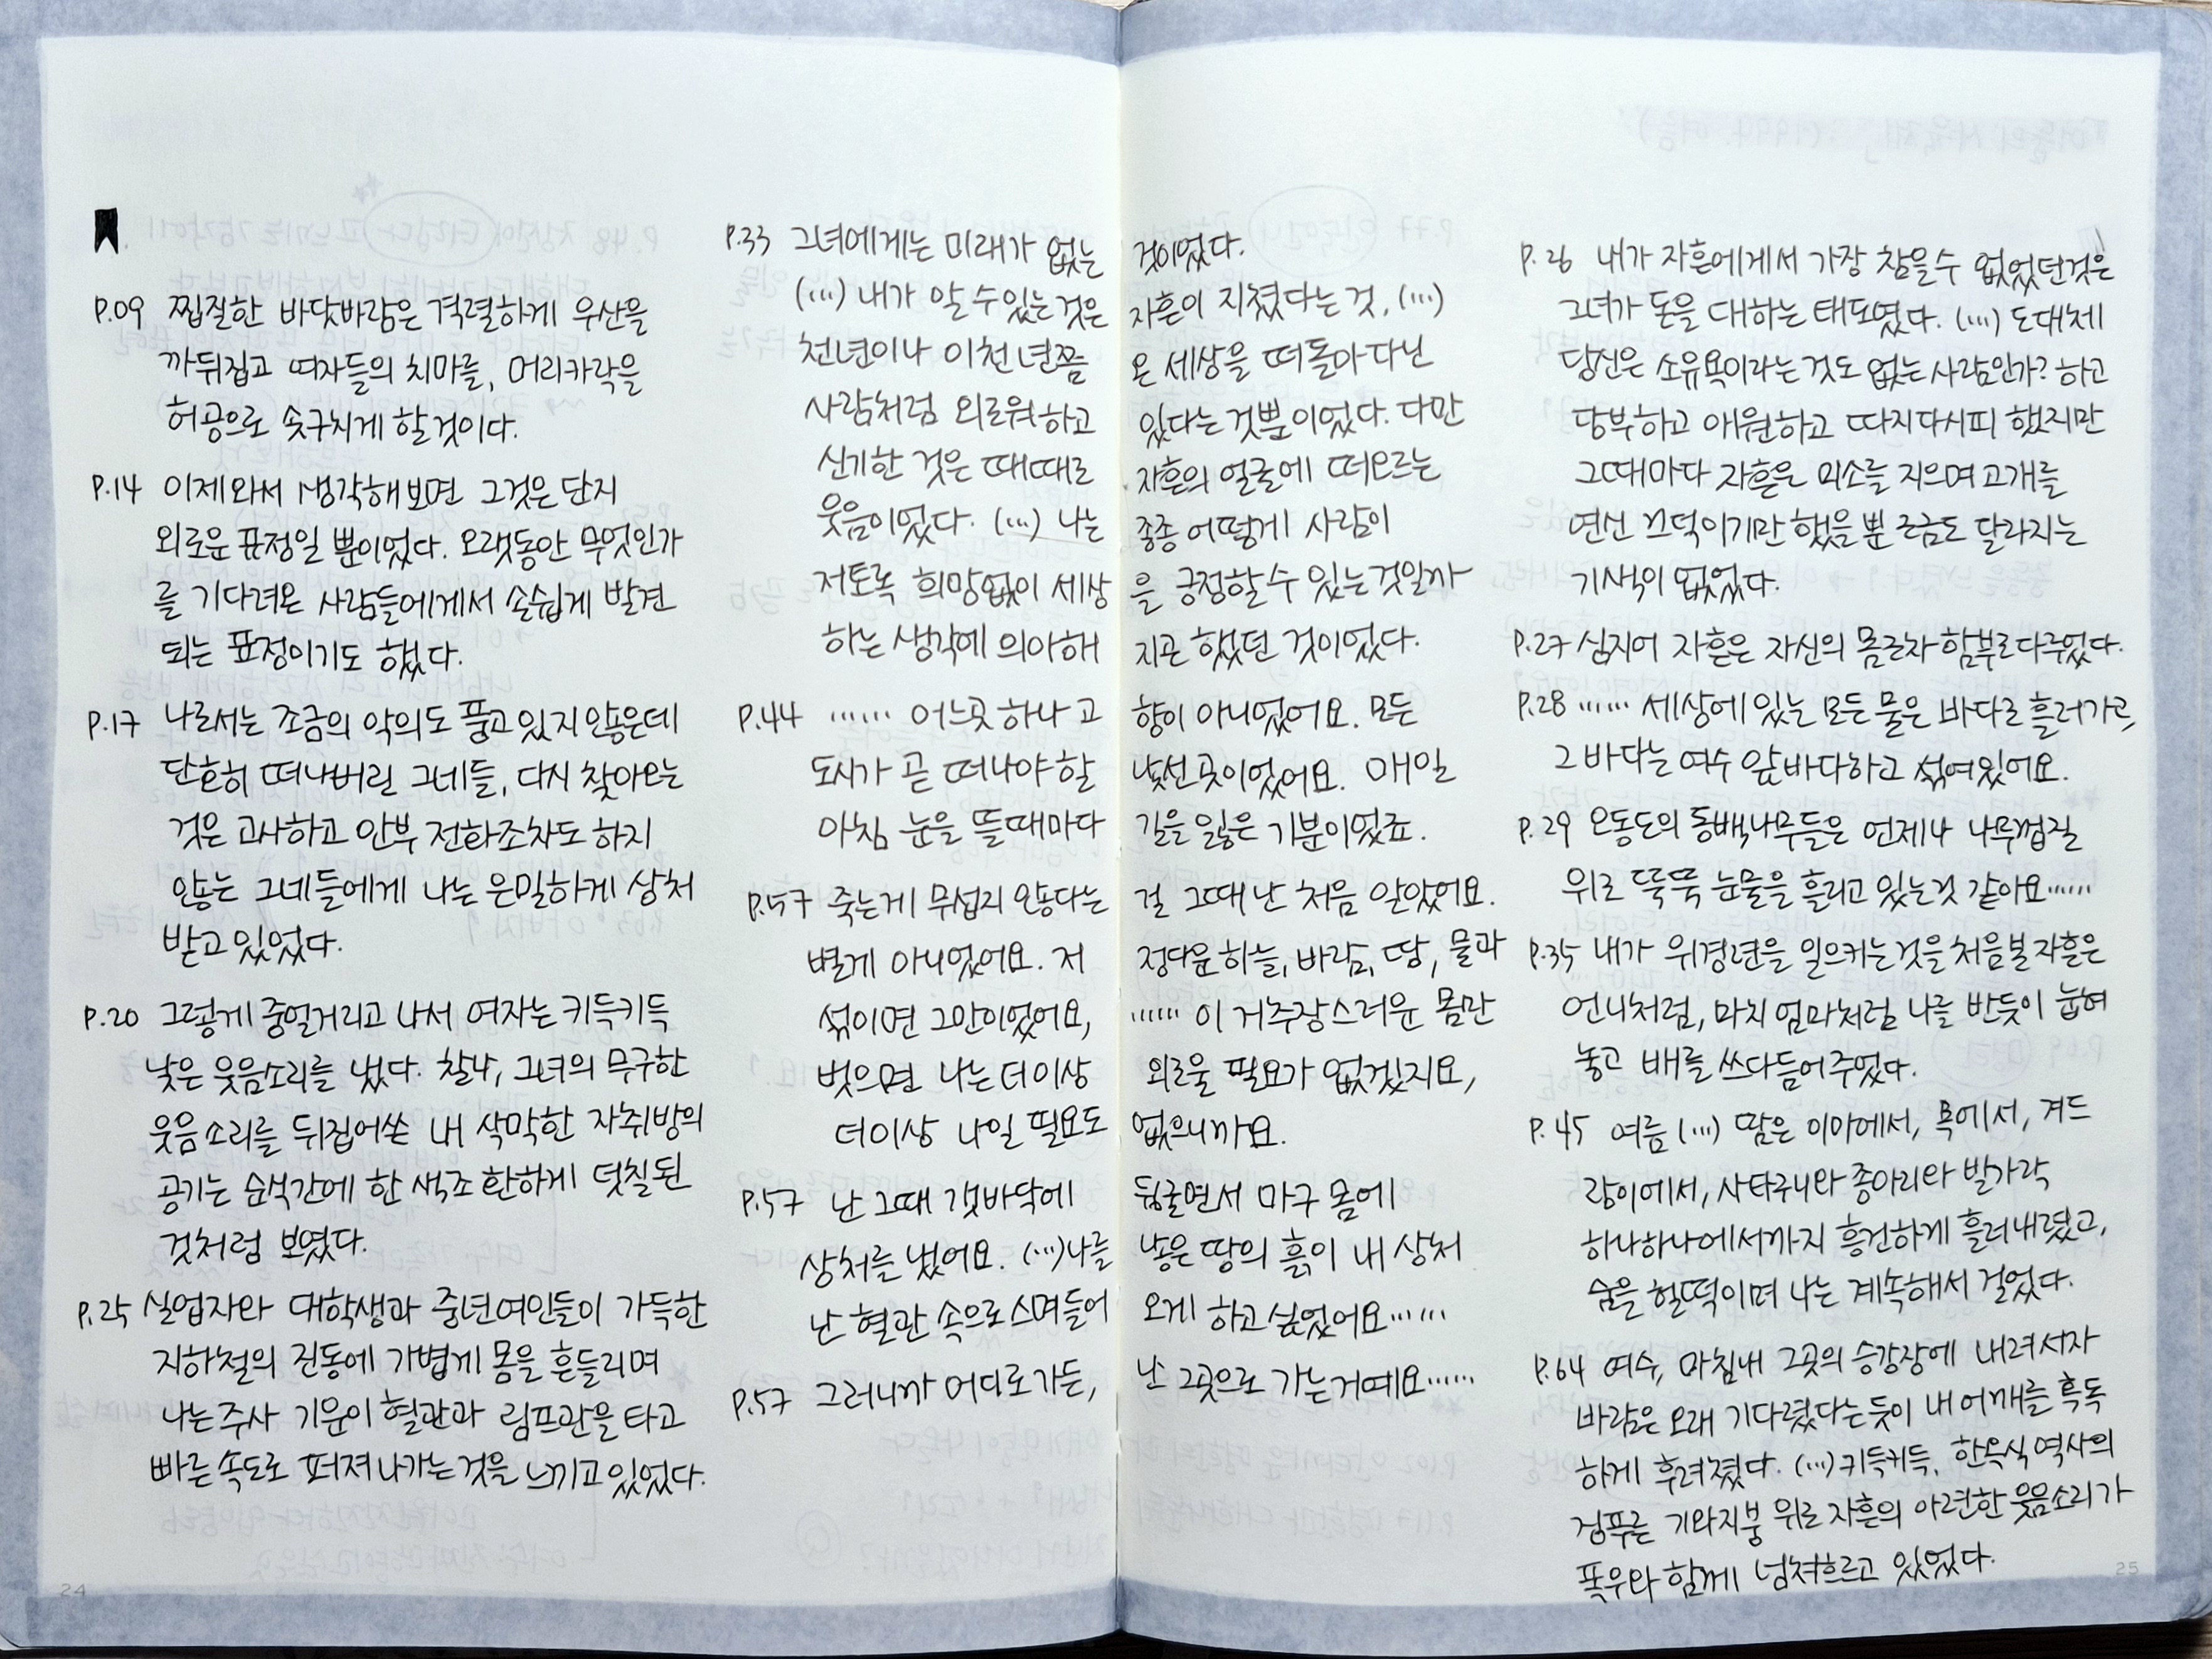 P.09 찝질한 바닷바람은 격렬하게 우산을
까뒤집고 여자들의 치마를, 머리카락을
허공으로 솟구치게 할 것이다.
P.14 이제와서 생각해보면 그것은 단지
외로운 표정일 뿐이었다. 오랫동안 무엇인가
를 기다려온 사람들에게서 손쉽게 발견
되는 표정이기도 했다.
P.17 나로서는 조금의 악의도 품고 있지 않은데
단호히 떠나버린 그네들, 다시 찾아오는
것은 고사하고 안부 전화조차도 하지
않는 그네들에게 나는 은밀하게 상처
받고 있었다.
P.20 그렇게 중얼거리고 나서 여자는 키득키득
낮은 웃음소리를 냈다. 찰나, 그녀의 무구한
웃음소리를 뒤집어쓴 내 삭막한 자취방의
공기는 순식간에 한 색조 환하게 덧칠된
것처럼 보였다.
P.25 실업자와 대학생과 중년여인들이 가득한
지하철의 진동에 가볍게 몸을 흔들리며
나는 주사 기운이 혈관과 림프관을 타고
빠른 속도로 퍼져나가는 것을 느끼고 있었다.
P.33 그녀에게는 미래가 없는 것이었다.
(...) 내가 알 수 있는 것은 자흔이 지쳤다는 것, (...)
천년이나 이천 년쯤 온 세상을 떠돌아 다닌
사람처럼 외로워하고 있다는 것뿐이었다. 다만
신기한 것은 때때로 자흔의 얼굴에 떠오르는
웃음이었다. (...) 나는 종종 어떻게 사람이
저토록 희망없이 세상을 긍정할 수 있는 것일까
하는 생각에 의아해지곤 했던 것이었다.
P.44 …… 어느 곳 하나 고향이 아니었어요. 모든
도시가 곧 떠나야 할 낯선 곳이었어요. 매일
아침 눈을 뜰 때마다 길을 잃은 기분이었죠.
P.57 죽는게 무섭지 않다는 걸 그때 난 처음 알았어요.
별게 아니었어요. 저 정다운 하늘, 바람, 땅, 물과
섞이면 그만이었어요, …… 이 거추장스러운 몸만
벗으면 나는 더이상 외로울 필요가 없겠지요,
더이상 나일 필요도 없으니까요.
P.57 난 그때 갯바닥에 뒹굴면서 마구 몸에
상처를 냈어요. (...) 나를 낳은 땅의 흙이 내 상처
난 혈관 속으로 스며들어 오게 하고 싶었어요……
P.57 그러니까 어디로 가든, 난 그곳으로 가는 거예요……
P.26 내가 자흔에게서 가장 참을 수 없었던 것은
그녀가 돈을 대하는 태도였다. (...) 도대체
당신은 소유욕이라는 것도 없는 사람인가? 하고
당부하고 애원하고 따지다시피 했지만
그때마다 자흔은 미소를 지으며 고개를
연신 끄덕이기만 했을 뿐 조금도 달라지는
기색이 없었다.
P.27 심지어 자흔은 자신의 몸조차 함부로 다루었다.
P.28 …… 세상에 있는 모든 물은 바다로 흘러가고,
그 바다는 여수 앞바다하고 섞여있어요.
P.29 오동도의 동백나무들은 언제나 나무껍질
위로 뚝뚝 눈물을 흘리고 있는 것 같아요……
P.35 내가 위경련을 일으키는 것을 처음 본 자흔은
언니처럼, 마치 엄마처럼 나를 반듯이 눕혀
놓고 배를 쓰다듬어 주었다.
P.45 여름 (...) 땀은 이마에서, 목에서, 겨드
랑이에서, 사타구니와 종아리와 발가락
하나하나에서까지 흥건하게 흘러내렸고,
숨을 헐떡이며 나는 계속해서 걸었다.
P.64 여수, 마침내 그곳의 승강장에 내려서자
바람은 오래 기다렸다는 듯이 내 어깨를 혹독
하게 후려쳤다. (...) 키득키득, 한옥식 역사의
검푸른 기와지붕 위로 자흔의 아련한 웃음소리가
폭우와 함께 넘쳐흐르고 있었다.
24
25